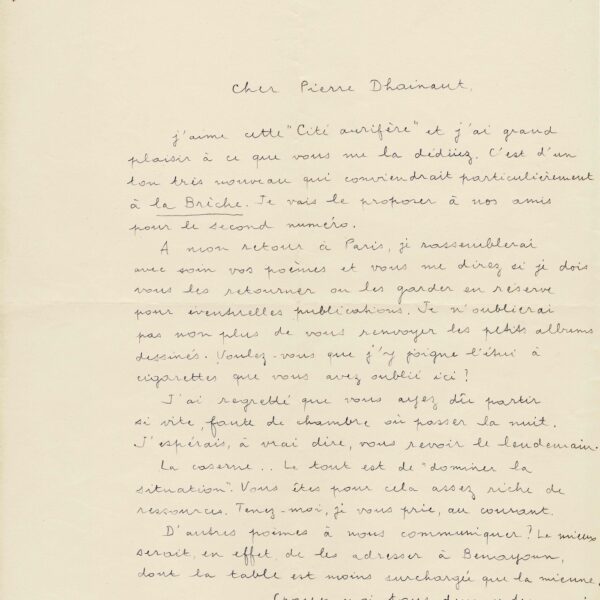 Cher Pierre Dhainaut,
j'aime cette "Cité aurifère" et j'ai grand
plaisir à ce que vous me la dédiiez. C'est d'un
ton très nouveau qui conviendrait particulièrement
à la Brèche. Je vais le proposer à nos amis
pour le second numéro.
A mon retour à Paris, je rassemblerai
avec soin vos poèmes et vous me direz si je dois
vous les retourner ou les garder en réserve
pour éventuelles publications. Je n'oublierai
pas non plus de vous renvoyer les petits albums
dessinés. Voulez-vous que j'y joigne l'étui à
cigarettes que vous avez oublié ici ?
J'ai regretté que vous ayez dû partir
si vite, faute de chambre où passer la nuit.
J'espérais, à vrai dire, vous revoir le lendemain.
La caserne.. Le tout est de "dominer la
situation". Vous êtes pour cela assez riche de
ressources. Tenez-moi, je vous prie, au courant.
D'autres poèmes à nous communiquer ? Le mieux
serait, en effet, de les adresser à Benayoun,
dont la table est moins surchargée que la mienne.